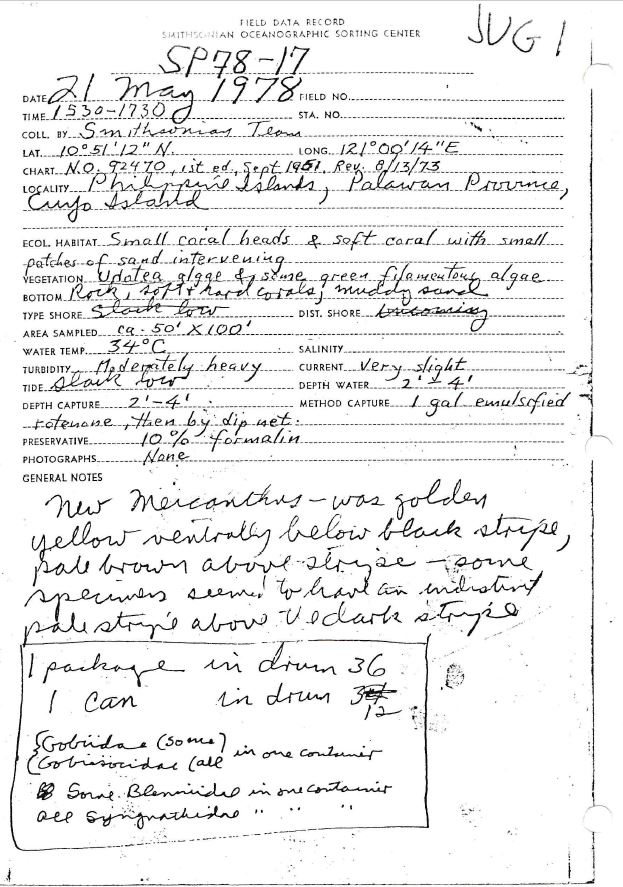 FIELD DATA RECORD
SMITHSONIAN OCEANOGRAPHIC SORTING CENTER
JVG 1
SP78-17
DATE 21 May 1978 FIELD NO.
TIME 1530-1730 STA. NO.
COLL. BY Smithsonian Team
LAT. 10°51'12" N. LONG. 121°00'14"E
CHART N.O. 92470, 1st ed., Sept 1951, Rev. 8/13/73
LOCALITY Philippine Islands, Palawan Province,
Cuyo Island
ECOL. HABITAT Small coral heads & soft coral with small
patches of sand intervening
VEGETATION Udotea algae & some green filamentous algae
BOTTOM Rock, soft & hard corals, muddy sand
TYPE SHORE Slack low DIST. SHORE Incoming
AREA SAMPLED ca. 50' X 100'
WATER TEMP. 34°C SALINITY
TURBIDITY Moderately heavy CURRENT Very slight
TIDE Slack low DEPTH WATER 2'-4'
DEPTH CAPTURE 2'-4' METHOD CAPTURE 1 gal emulsified
rotenone, then by dip net.
PRESERVATIVE 10% formalin
PHOTOGRAPHS None
GENERAL NOTES
New Meiacanthus - was golden
yellow ventrally below black stripe,
pale brown above stripe - some
specimens seemed to have an indistinct
pale stripe above dark stripe
1 package in drum 36
1 can in drum
12
Gobiidae (some)
Gobiesocidae (all in one container
Some Blenniidae in one container
all Syngnathidae " " "